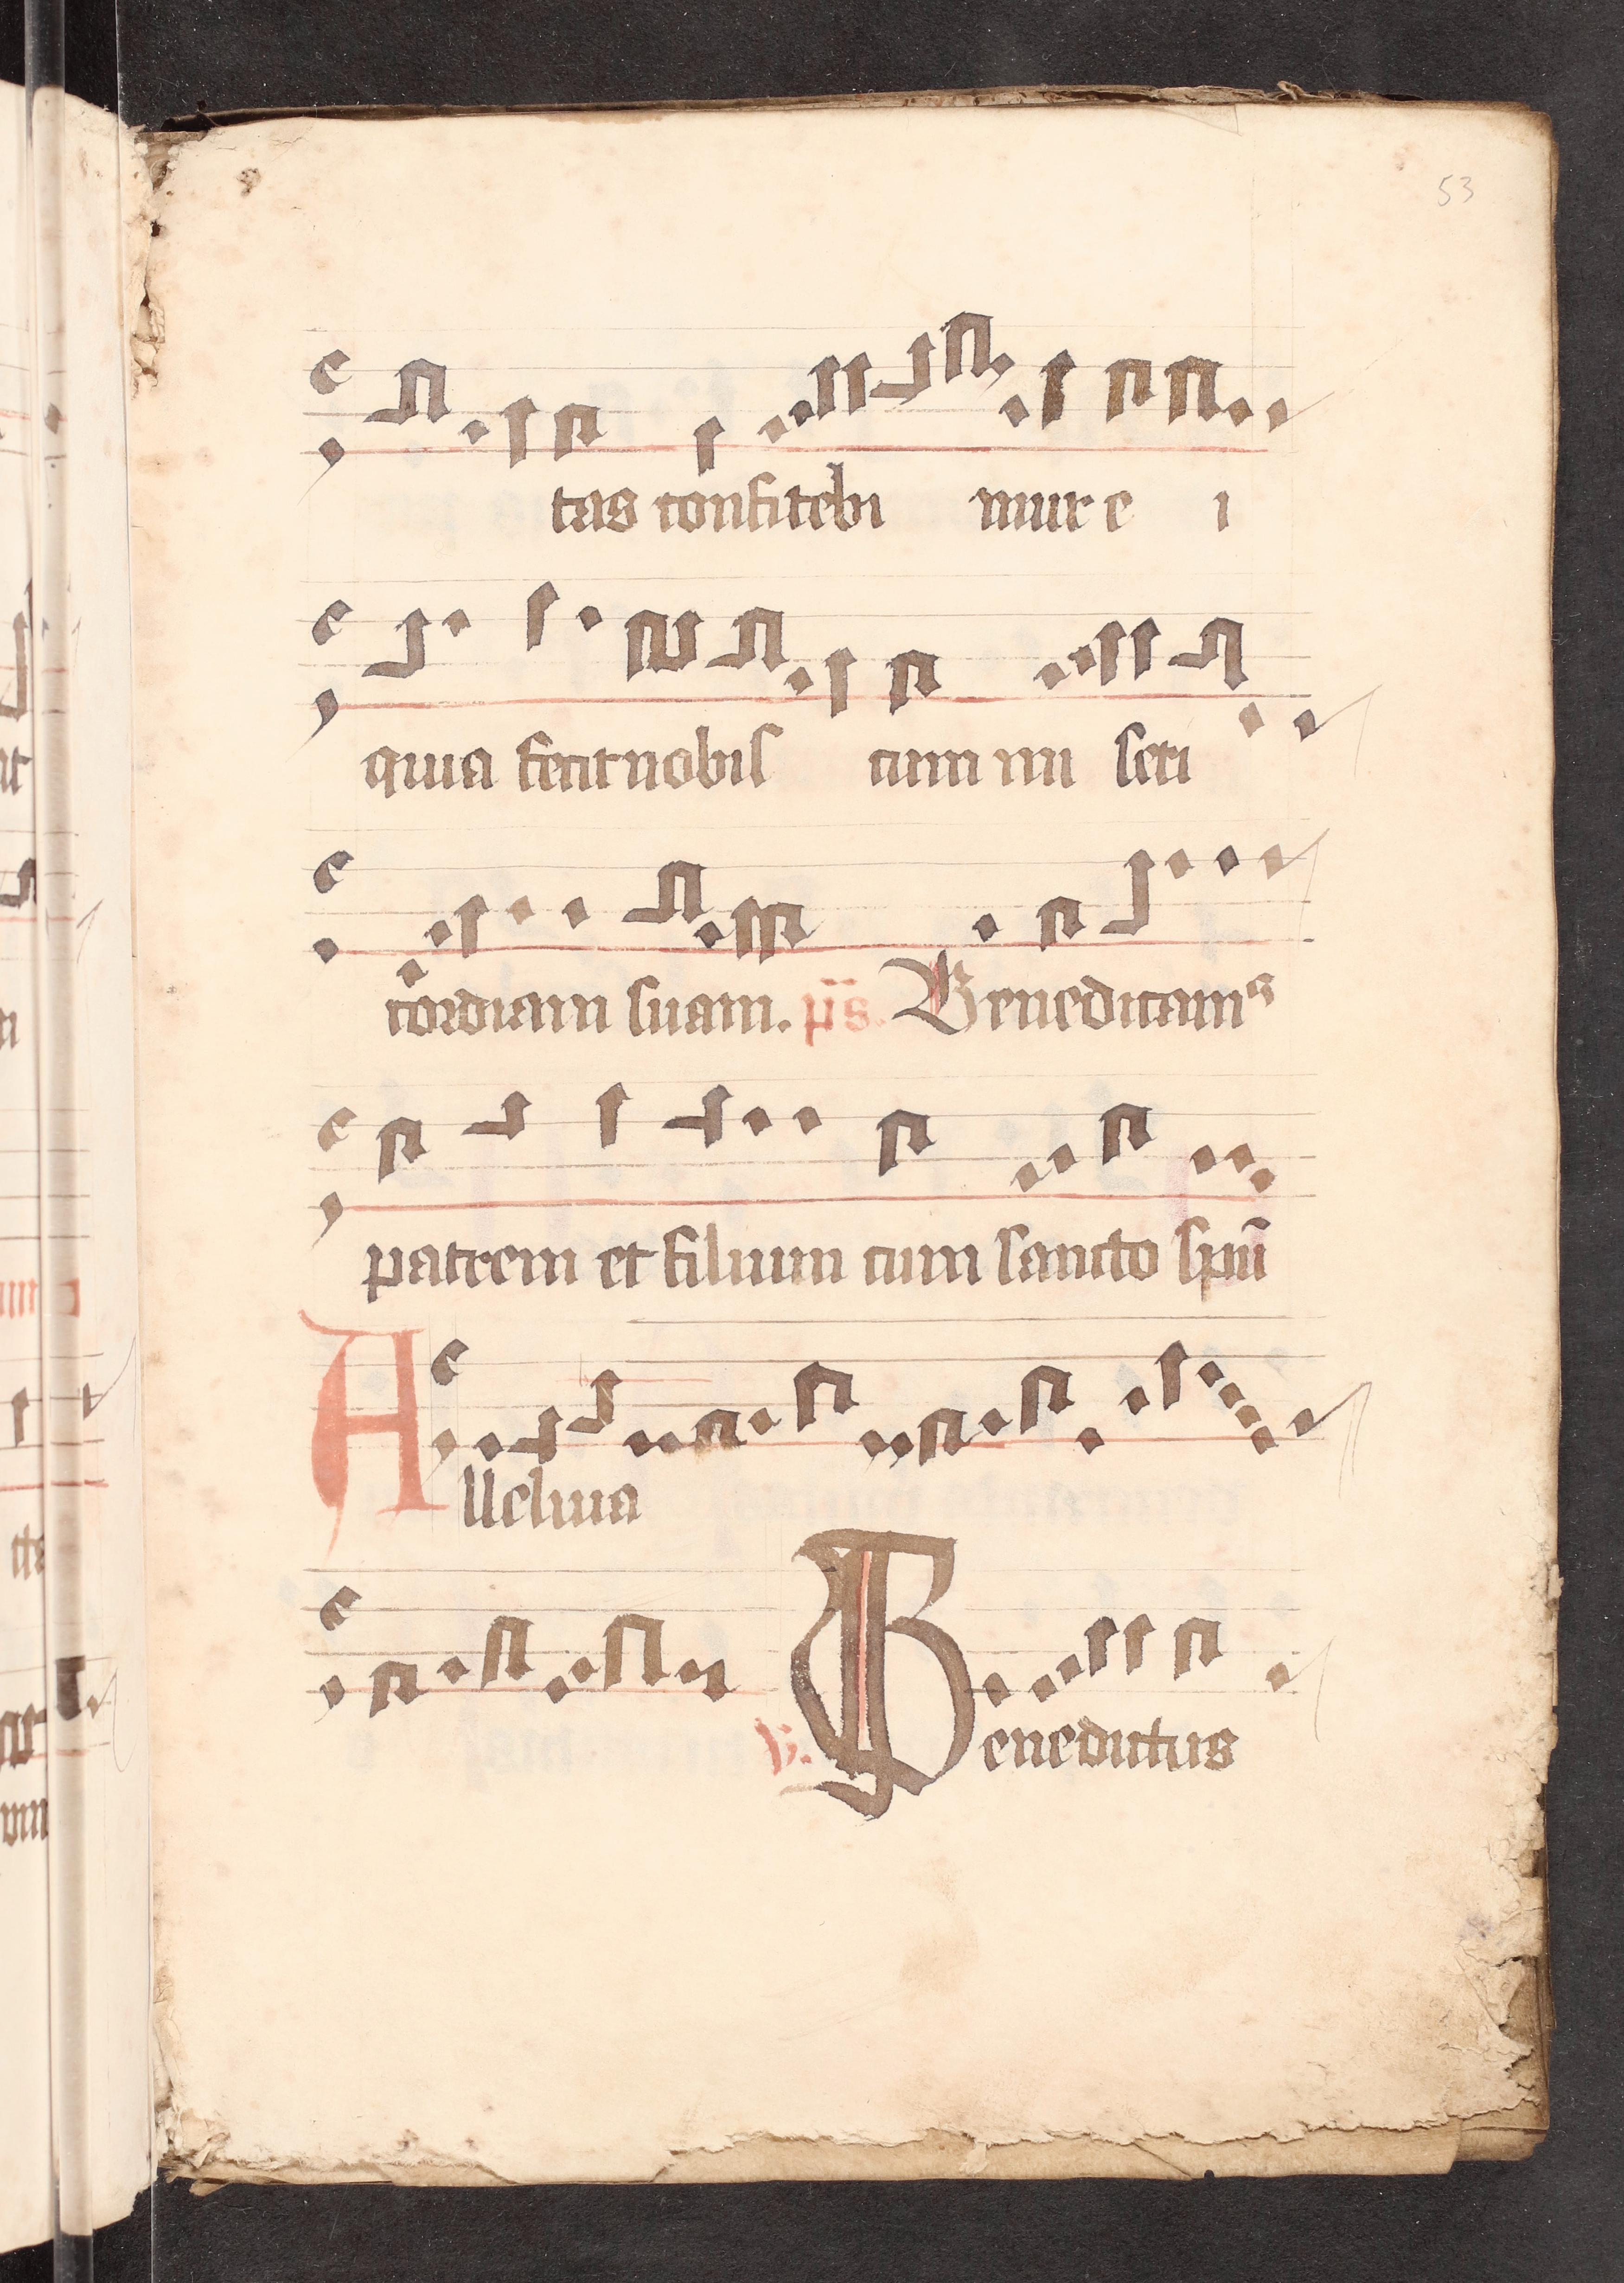 53
tas confitebi mur e i
quia fecit nobis cum mi seri
cordiam suam. ps. Benedicamꝰ
patrem et filium cum sancto spū
Alleluia
v. Benedictus